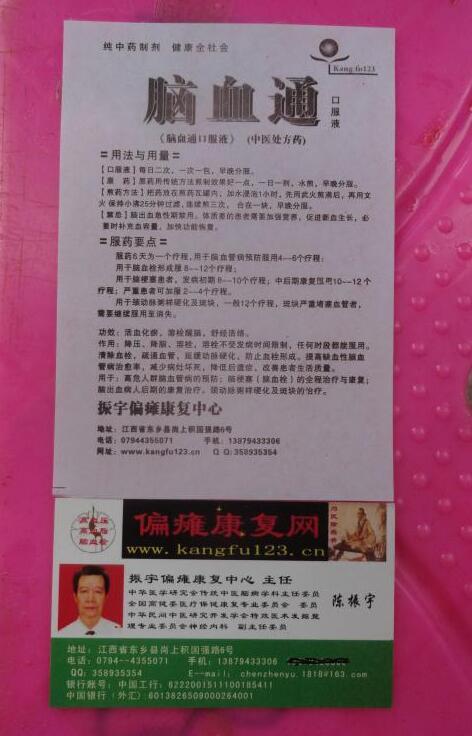 纯中药制剂 健康全社会
Kang.fu123
脑血通 口服液
《脑血通口服液》 (中医处方药)
=用法与用量=
【口服液】每日二次，一次一包，早晚分服。
【原 药】原药用传统方法煎制效果好一点，一日一剂，水煎，早晚分服。
【煎药方法】把药放在煎药瓦罐内，加水浸泡1小时，先用武火煎沸后，再用文
火 保持小沸25分钟过滤，连续煎三次， 合在一块，早晚分服。
【禁忌】脑出血急性期禁用。体质差的患者需要加强营养，促进新血生长，必
要时补充血容量，加快功能恢复。
=服药要点=
服药6天为一个疗程，用于脑血管病预防服用4—6疗程；
用于脑血栓形成服8—12个疗程；
用于脑梗塞患者，发病初期8—10个疗程；中后期康复服用10—12个
疗程；严重患者可加服2—4个疗程。
用于颈动脉粥样硬化及斑块，一般12个疗程，斑块严重堵塞血管者，
需要继续服用至消失。
功效：活血化瘀，溶栓醒脑，舒经活络。
作用：降压，降脂，溶栓，溶栓不受发病时间限制，任何时段都能服用。
清除血栓，疏通血管，延缓动脉硬化，防止血栓形成。提高缺血性脑血
管病治愈率，减少病灶坏死，降低后遗症，改善患者生活质量。
用于：高危人群脑血管病的预防；脑梗塞（脑血栓）的全程治疗与康复；
脑出血病人后期的康复治疗。颈动脉粥样硬化及斑块的治疗。
振宇偏瘫康复中心
地址：江西省东乡县岗上积国强路6号
电话：07944355071 手机：13879433306
网址：www.kangfu123.cn Q Q:358935354
高血压
高血脂
脑血栓
偏瘫康复网
www.kangfu123.cn
振宇偏瘫康复中心 主任
中华医学研究会传统中医脑病学科主任委员
全国高健委医疗保健康复专业委员会 委员
中华民间中医研究开发学会特效医术发掘整
理专业委员会神经内科 副主任委员
陈振宇
地址：江西省东乡县岗上积国强路6号
电话：0794--4355071 手机：13879433306
QQ: 358935354 E--mail: chenzhenyu.1818#163.com
银行账号：中国工行：6222001511100185411
中国银行（外汇）6013826509000264001